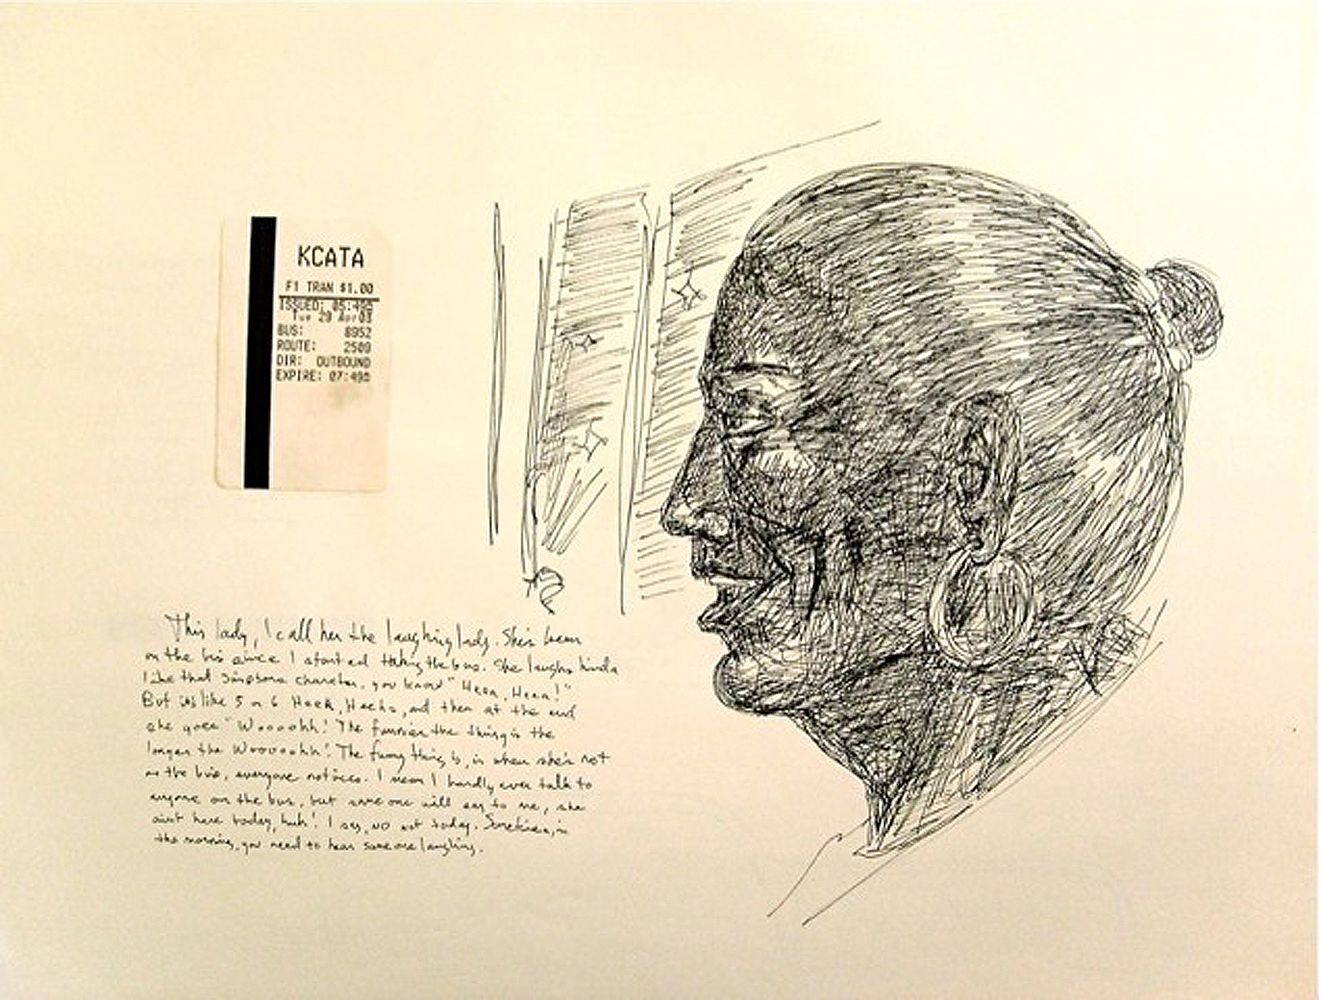 KCATA
F1 TRAN $1.00
ISSUED: 05:49
Tue 29 Apr 03
BUS: 8952
ROUTE: 2509
DIR: OUTBOUND
EXPIRE: 07:49
This lady, I call her the laughing lady. She's been
on the bus since I started taking the bus. She laughs kinda
like that Simpsons character, you know "Heea, Heea!"
But it's like 5 or 6 and then at the end
she goes "Woooohh! The funnier the thing is the
longer the Wooooohh! The funny thing is, is when she's not
on the bus, everyone notices. I mean I hardly ever talk to
anyone on the bus, but someone will say to me, she
aint here today, huh! I say, no not today. Sometimes, in
the morning, you need to hear someone laughing.